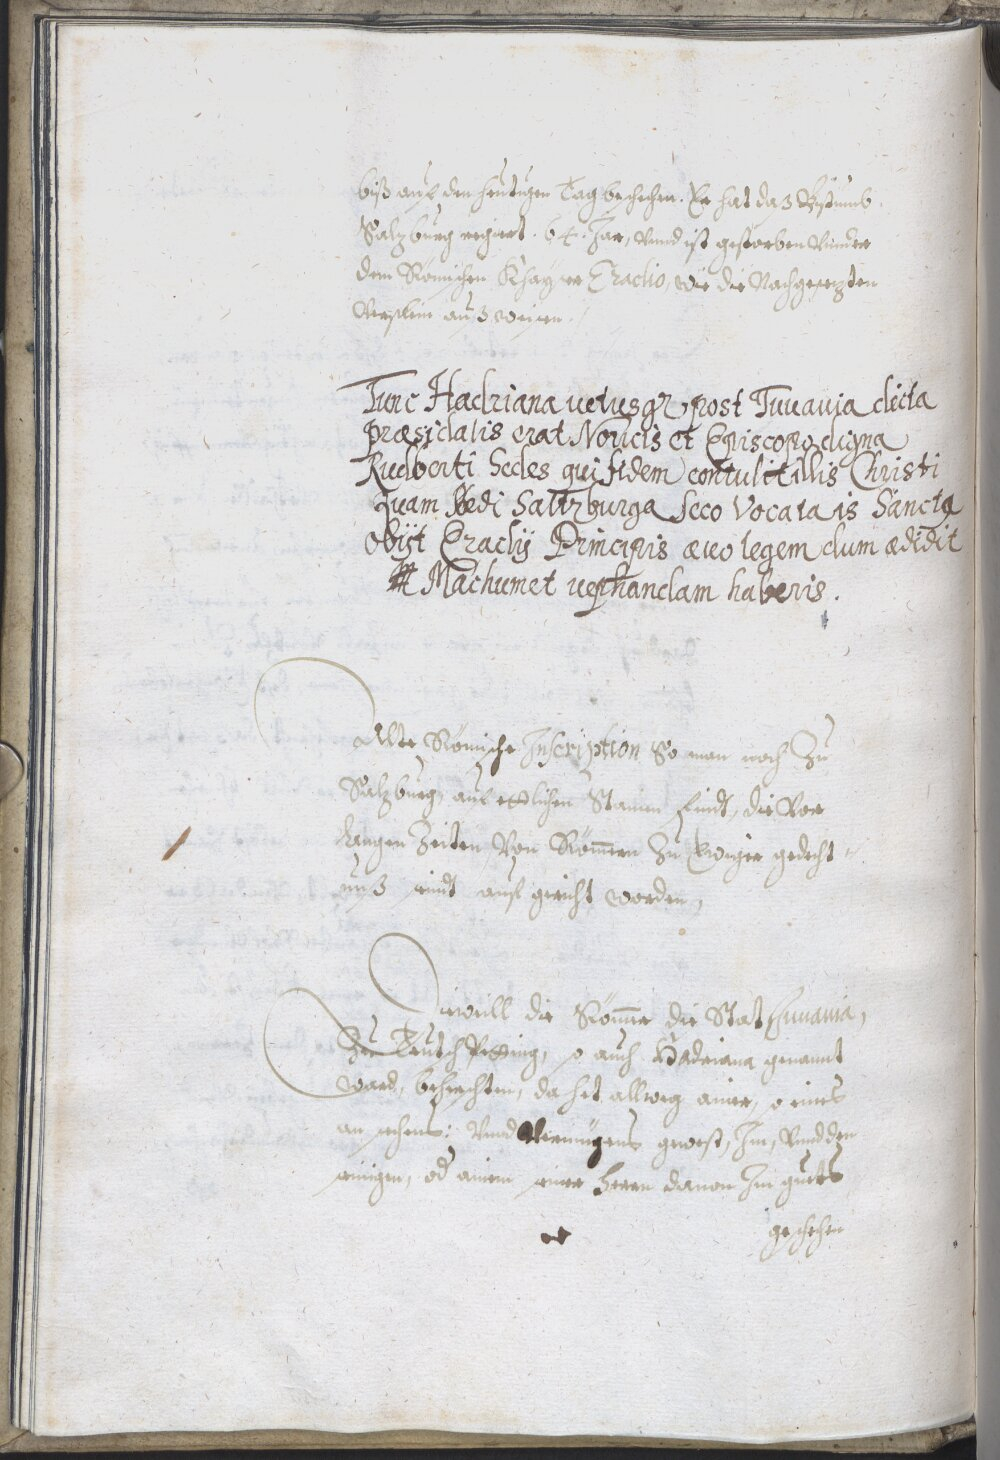 biß auf den heutigen Tag beschehen. Er hat das Bistumb
Salzburg regiert. 64. Jar, Vnnd ist gestorben Vnnder
dem Römischen Khayser Eraclio, wie die Nachgesetzten
Verslein außweisen.
Tunc Hadriana uetus qz post Iuuauia dicta
Præsidalis erat Noricis et Episcopo digna
Rudberti Sedes qui fidem contulit illis Christi
Quam Sedi Saltzburga Seco Vocata is Sancta
Obijt Eraclij Principis æuo legem dum ædidit
Machumet nephandam haberis.
Alte Römische Inscription So man noch Zu
Salzburg, auf ettlichen Stainen findt, die Vor
langen Zeiten, Von Römern Zu Ewiger gedecht-
nus sindt aufgericht worden,
Dieweill die Römer die Stat Iuuauia,
Zu Teutsch so auch Hadriana genannt
ward, da hat allweg ainer, so eines
ansehens: Vnnd Vermügens gwest, Im, Vnnd den
seinigen, od ainem seiner herrn dauon Im guets
geschehen